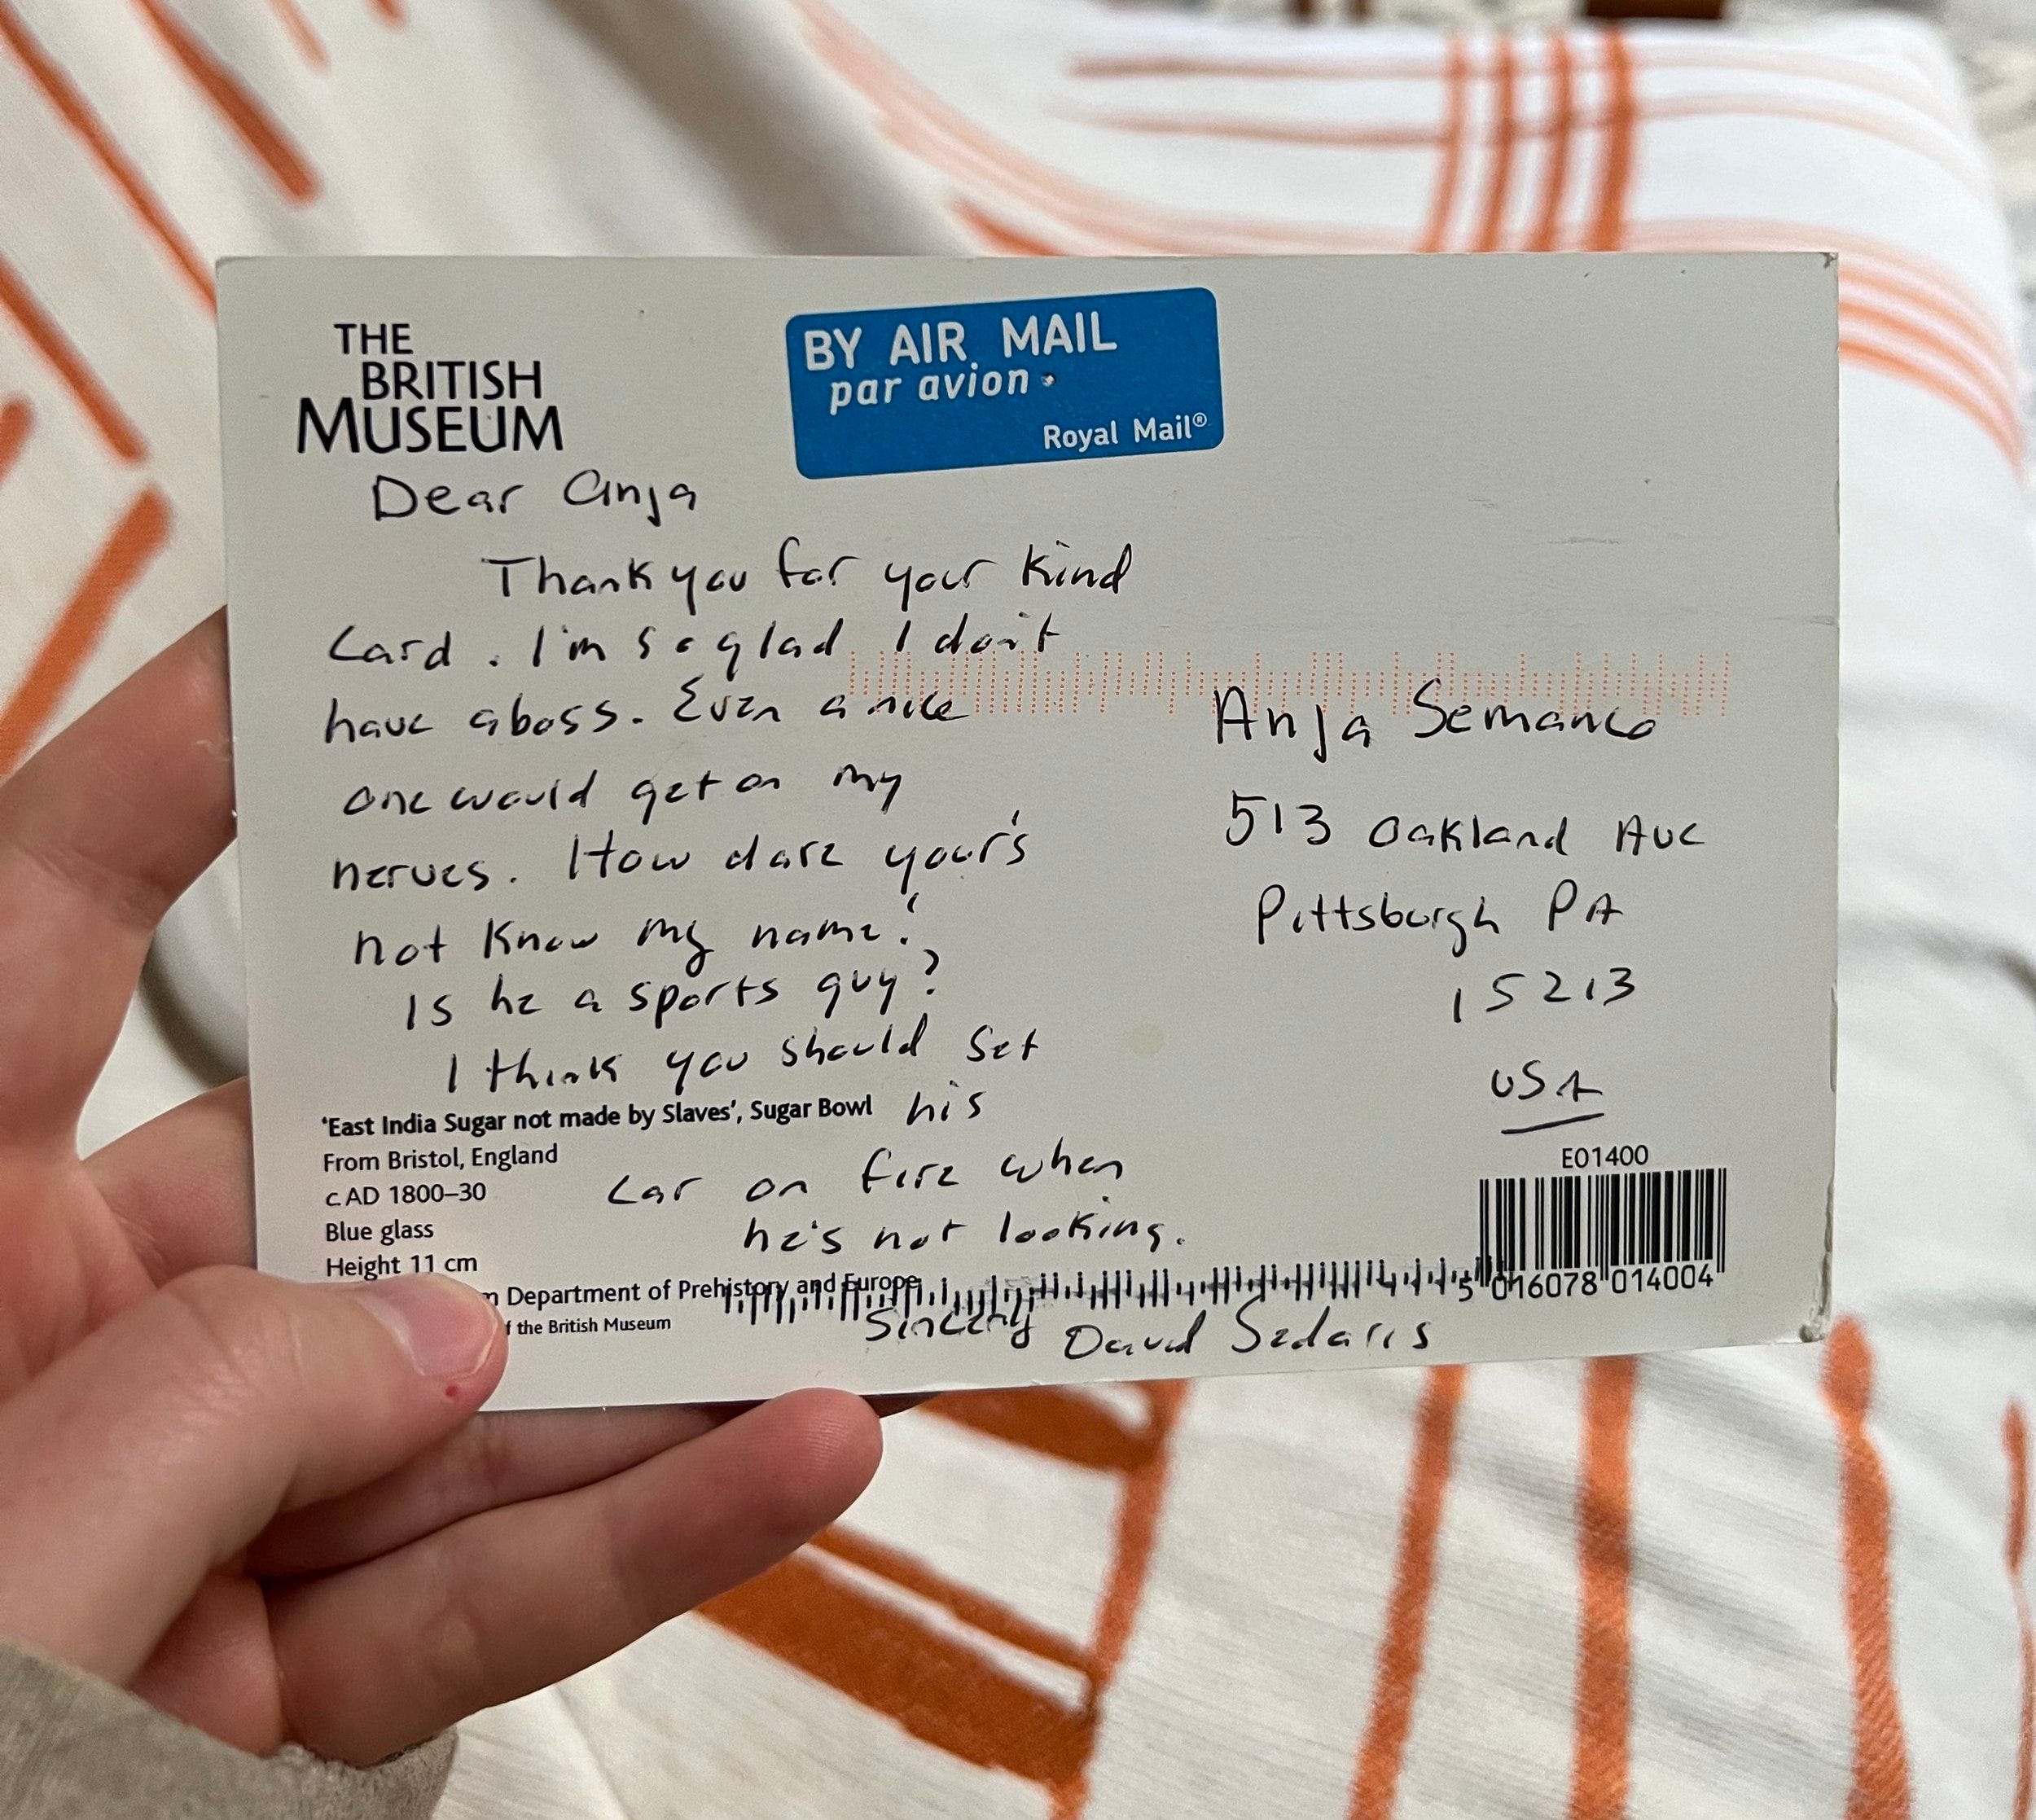 THE
BRITISH
MUSEUM
BY AIR MAIL
par avion
Royal Mail®
Dear Anja
Thank you for your kind
card. I'm so glad I don't
have a boss. Even a nice
one would get on my
nerves. How dare your's
not know my name!
Is he a sports guy?
I think you should set
his
car on fire when
he's not looking.
Sincerly David Sedaris
Anja Semanco
513 Oakland Ave
Pittsburgh PA
15213
USA
'East India Sugar not made by Slaves', Sugar Bowl
From Bristol, England
c.AD 1800–30
Blue glass
Height 11 cm
Department of Prehistory and Europe
of the British Museum
E01400
5 016078 014004